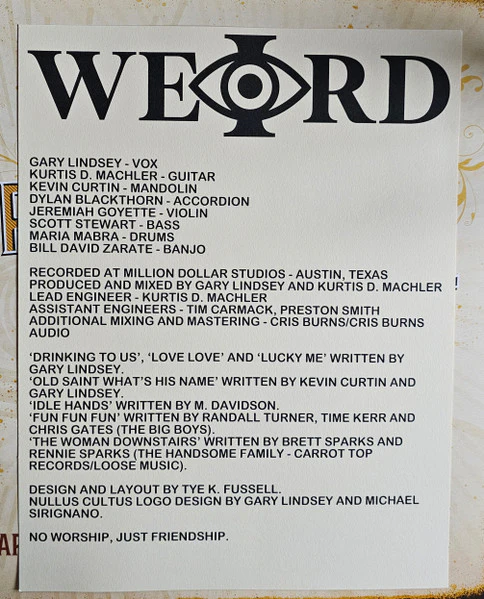 WEIRD
GARY LINDSEY - VOX
KURTIS D. MACHLER - GUITAR
KEVIN CURTIN - MANDOLIN
DYLAN BLACKTHORN - ACCORDION
JEREMIAH GOYETTE - VIOLIN
SCOTT STEWART - BASS
MARIA MABRA - DRUMS
BILL DAVID ZARATE - BANJO
RECORDED AT MILLION DOLLAR STUDIOS - AUSTIN, TEXAS
PRODUCED AND MIXED BY GARY LINDSEY AND KURTIS D. MACHLER
LEAD ENGINEER - KURTIS D. MACHLER
ASSISTANT ENGINEERS - TIM CARMACK, PRESTON SMITH
ADDITIONAL MIXING AND MASTERING - CRIS BURNS/CRIS BURNS
AUDIO
‘DRINKING TO US’, ‘LOVE LOVE’ AND ‘LUCKY ME’ WRITTEN BY
GARY LINDSEY.
‘OLD SAINT WHAT’S HIS NAME’ WRITTEN BY KEVIN CURTIN AND
GARY LINDSEY.
‘IDLE HANDS’ WRITTEN BY M. DAVIDSON.
‘FUN FUN FUN’ WRITTEN BY RANDALL TURNER, TIME KERR AND
CHRIS GATES (THE BIG BOYS).
‘THE WOMAN DOWNSTAIRS’ WRITTEN BY BRETT SPARKS AND
RENNIE SPARKS (THE HANDSOME FAMILY - CARROT TOP
RECORDS/LOOSE MUSIC).
DESIGN AND LAYOUT BY TYE K. FUSSELL.
NULLUS CULTUS LOGO DESIGN BY GARY LINDSEY AND MICHAEL
SIRIGNANO.
NO WORSHIP, JUST FRIENDSHIP.